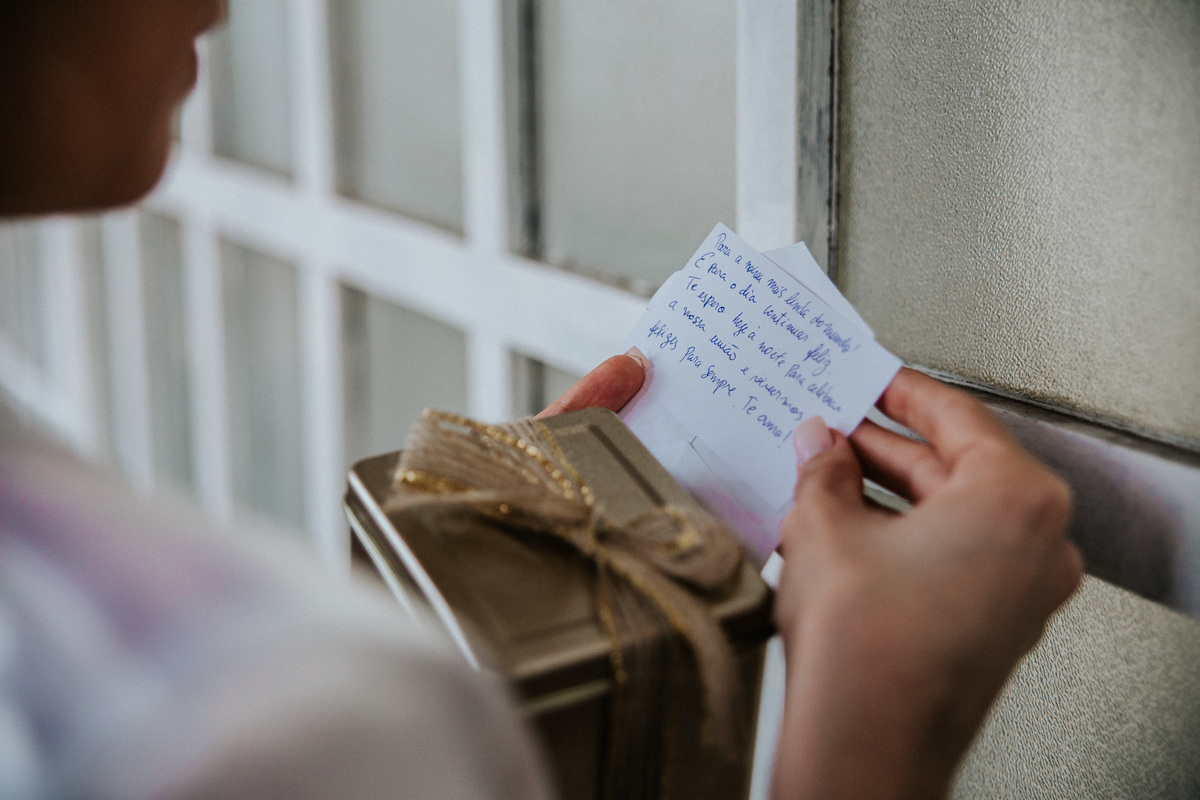 Para a noiva mais linda do mundo!
E para o dia continuar feliz,
Te espero hoje à noite para celebrar
a nossa união e vivermos
felizes para sempre. Te amo!